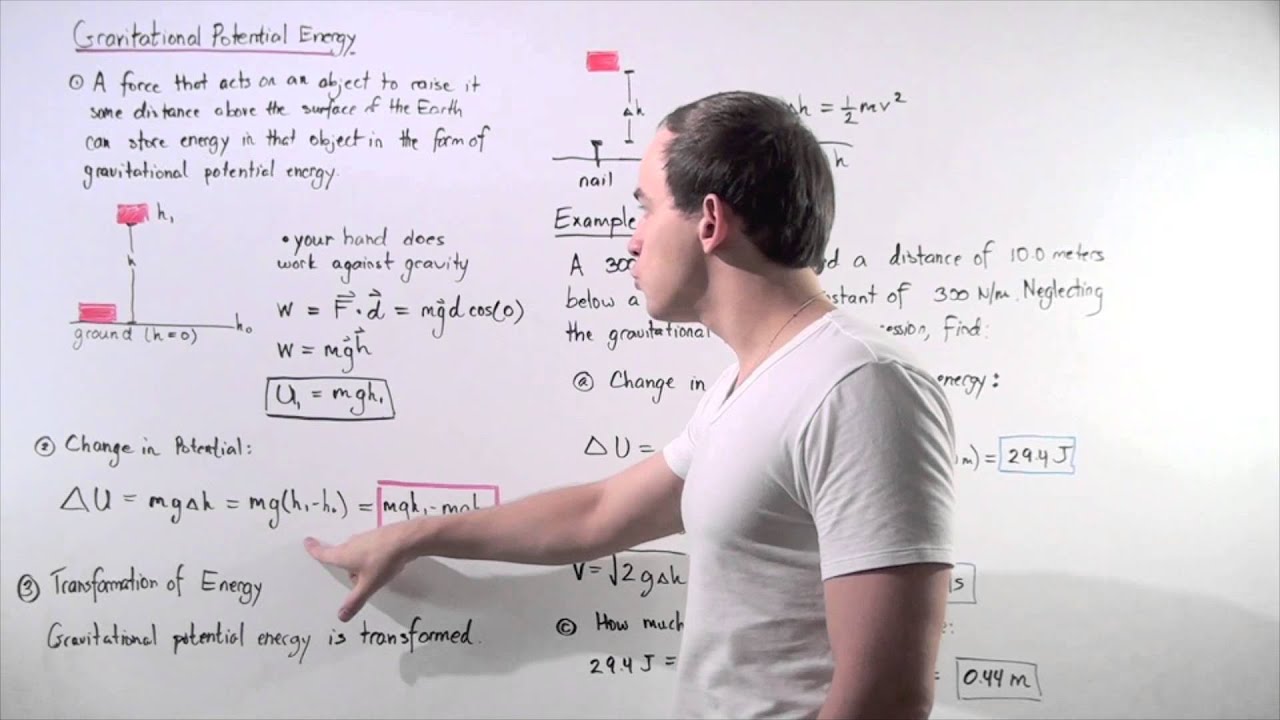 Gravitational Potential Energy
① A force that acts on an object to raise it
some distance above the surface of the Earth
can store energy in that object in the form of
gravitational potential energy.
h₁
h
h₀
ground (h=0)
• your hand does
work against gravity
W = F⃗ · d⃗ = mg⃗d cos(0)
W = mg⃗h⃗
U₁ = mgh₁
② Change in Potential:
ΔU = mgΔh = mg(h₁-h₀) = mgh₁-mgh
③ Transformation of Energy
Gravitational potential energy is transformed.
Δh
nail
h = ½mv²
h
Example
A 300 a distance of 10.0 meters
below a constant of 300 N/m. Neglecting
the gravitational find:
ⓐ Change in energy:
ΔU = m) = 29.4 J
V = √2gΔh
ⓒ How much
29.4 J = = 0.44 m